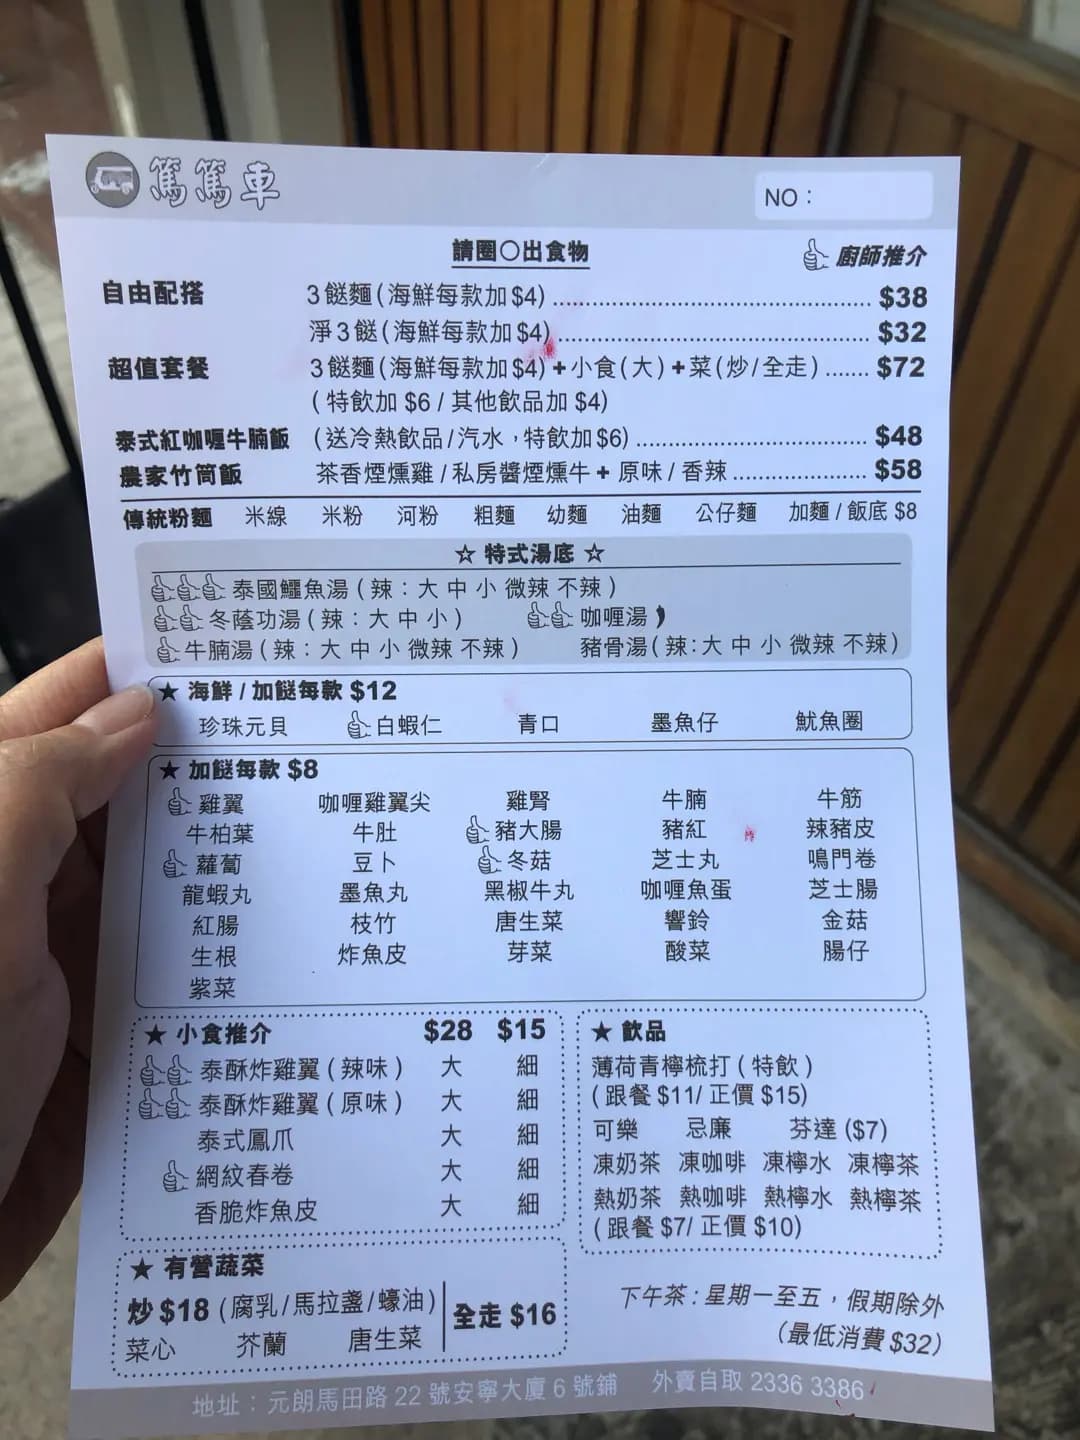 篤篤車 NO：
請圈〇出食物 廚師推介
自由配搭 3餸麵(海鮮每款加$4) $38
淨3餸(海鮮每款加$4) $32
超值套餐 3餸麵(海鮮每款加$4)+小食(大)+菜(炒/全走) $72
(特飲加$6/其他飲品加$4)
泰式紅咖喱牛腩飯 (送冷熱飲品/汽水，特飲加$6) $48
農家竹筒飯 茶香煙燻雞/私房醬煙燻牛+原味/香辣 $58
傳統粉麵 米線 米粉 河粉 粗麵 幼麵 油麵 公仔麵 加麵/飯底 $8
☆ 特式湯底 ☆
泰國鱷魚湯(辣：大 中 小 微辣 不辣)
冬蔭功湯(辣：大 中 小) 咖喱湯
牛腩湯(辣：大 中 小 微辣 不辣) 豬骨湯(辣：大 中 小 微辣 不辣)
★ 海鮮/加餸每款 $12
珍珠元貝 白蝦仁 青口 墨魚仔 魷魚圈
★ 加餸每款 $8
雞翼 咖喱雞翼尖 雞腎 牛腩 牛筋
牛柏葉 牛肚 豬大腸 豬紅 辣豬皮
蘿蔔 豆卜 冬菇 芝士丸 鳴門卷
龍蝦丸 墨魚丸 黑椒牛丸 咖喱魚蛋 芝士腸
紅腸 枝竹 唐生菜 響鈴 金菇
生根 炸魚皮 芽菜 酸菜 腸仔
紫菜
★ 小食推介 $28 $15
泰酥炸雞翼(辣味) 大 細
泰酥炸雞翼(原味) 大 細
泰式鳳爪 大 細
網紋春卷 大 細
香脆炸魚皮 大 細
★ 飲品
薄荷青檸梳打(特飲)
(跟餐 $11/ 正價 $15)
可樂 忌廉 芬達 ($7)
凍奶茶 凍咖啡 凍檸水 凍檸茶
熱奶茶 熱咖啡 熱檸水 熱檸茶
(跟餐 $7/ 正價 $10)
★ 有營蔬菜
炒 $18 (腐乳/馬拉盞/蠔油) 全走 $16
菜心 芥蘭 唐生菜
下午茶：星期一至五，假期除外
(最低消費 $32)
地址：元朗馬田路22號安寧大廈6號鋪 外賣自取 2336 3386